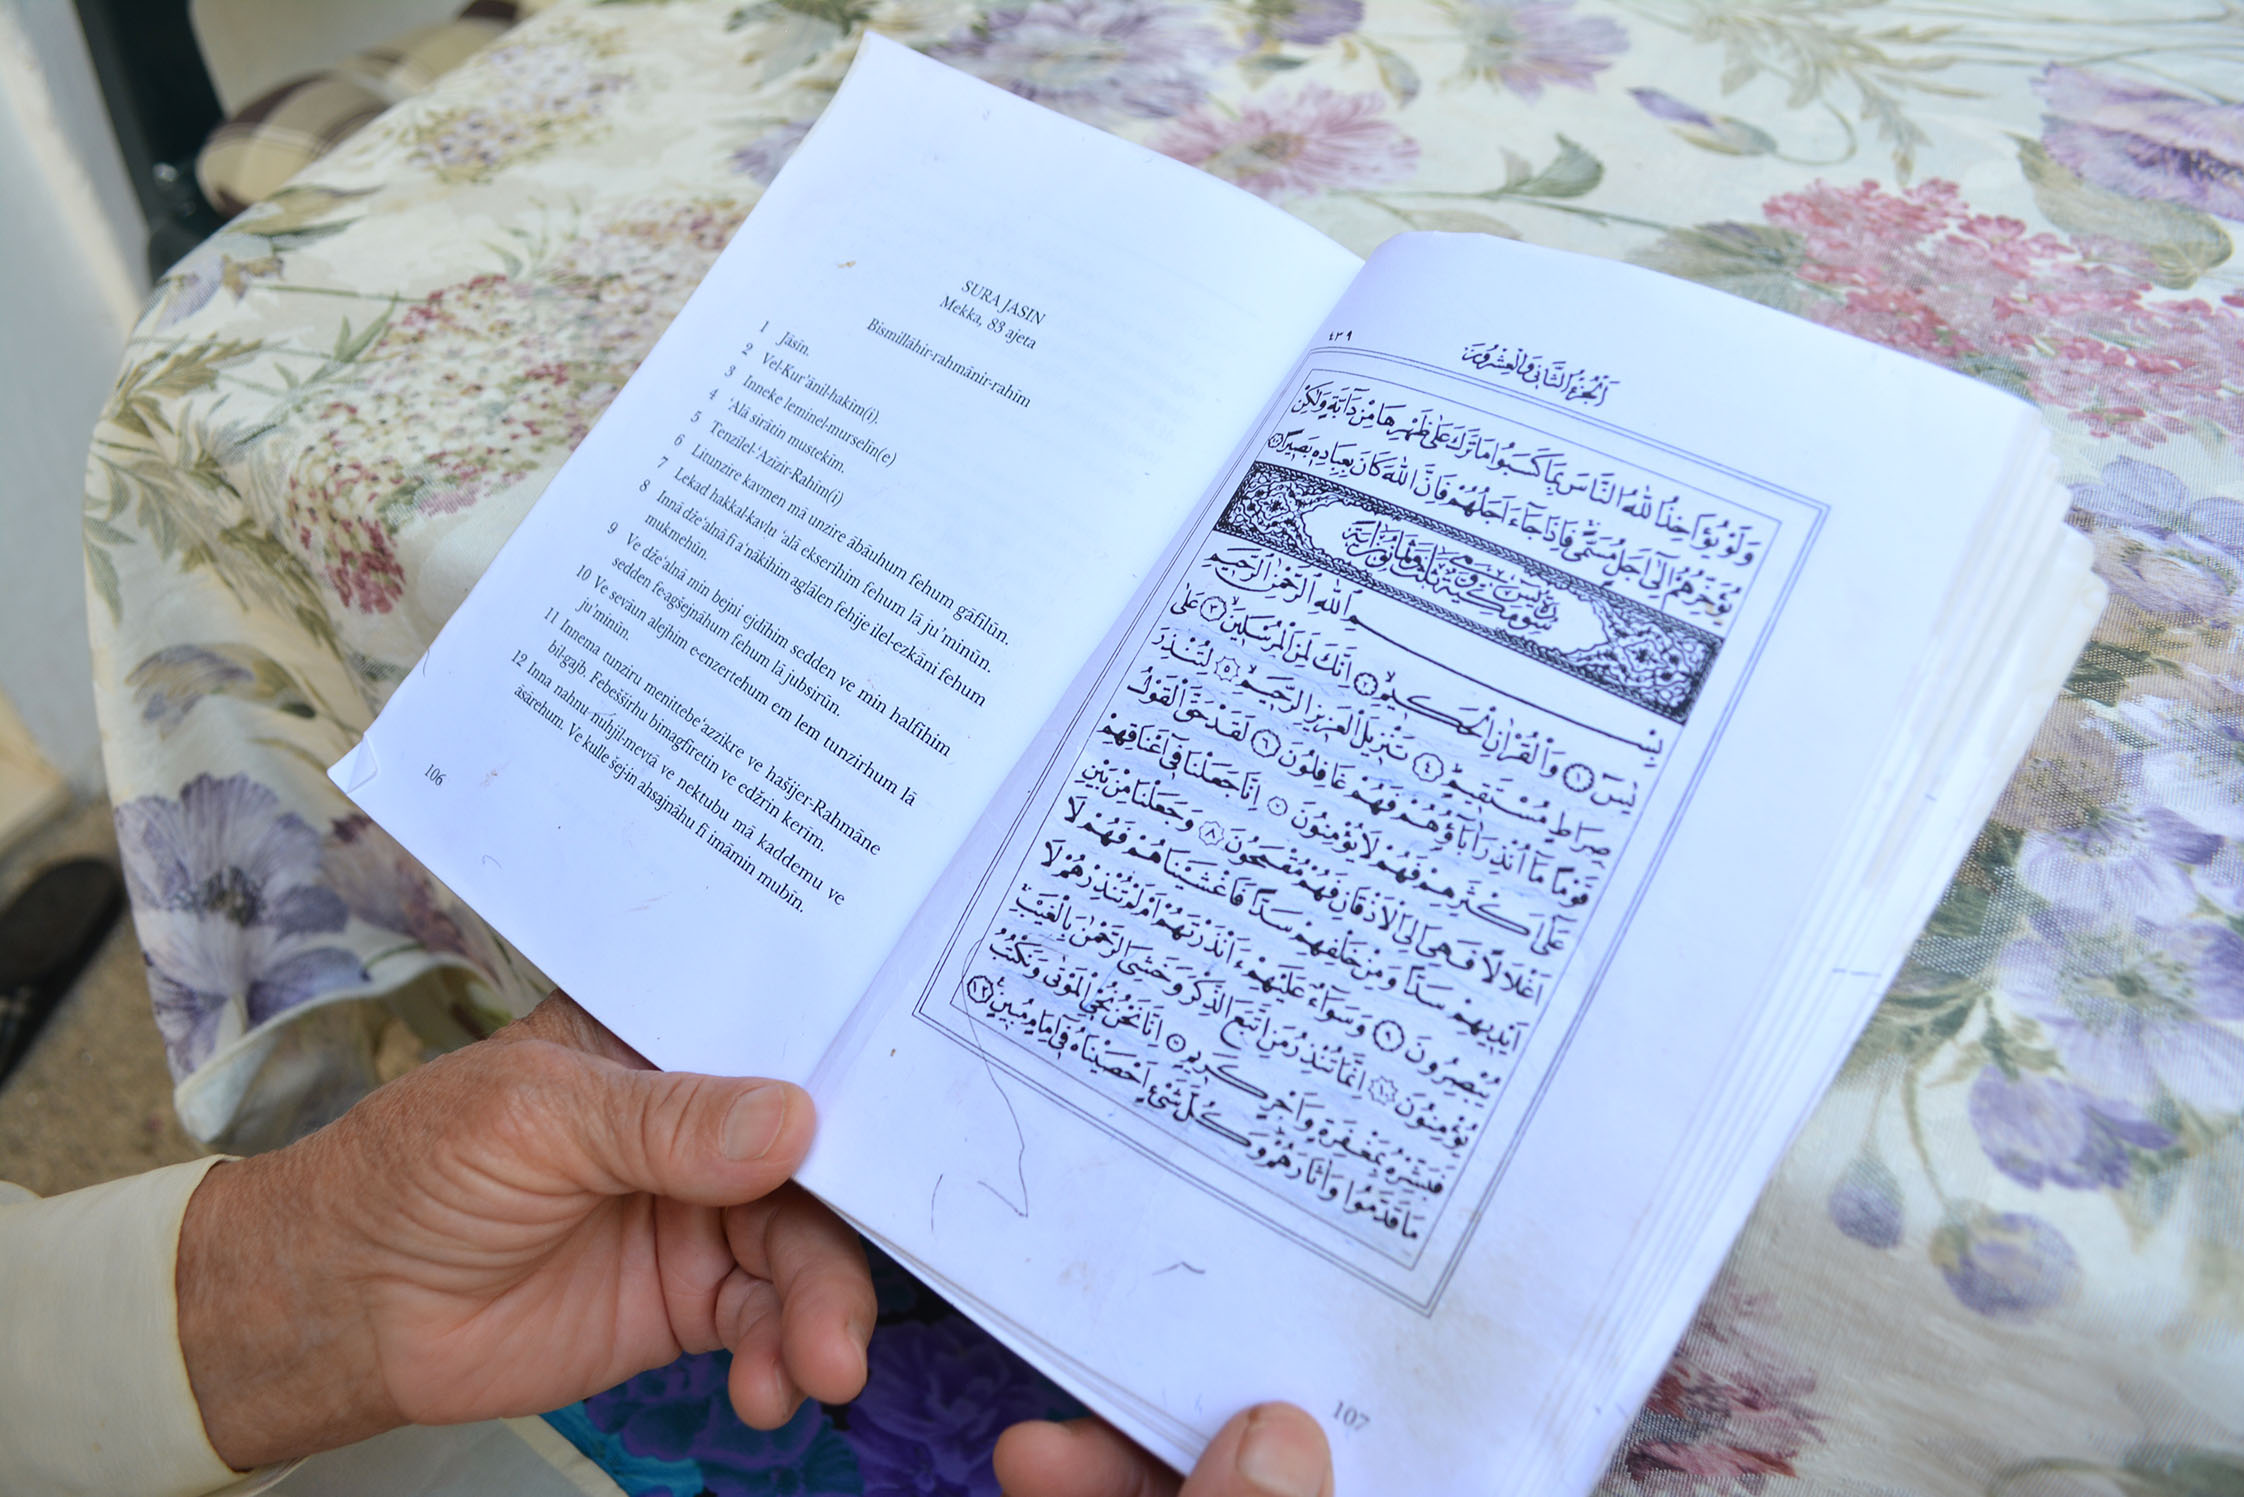 SURA JASIN
Mekka, 83 ajeta
Bismillāhir-rahmānir-rahīm
1 Jāsīn.
2 Vel-Kur’ānil-hakīm(i).
3 Inneke leminel-murselīn(e)
4 ‘Alā sirātin mustekīm.
5 Tenzīlel-‘Azīzir-Rahīm(i)
6 Litunzire kavmen mā unzire ābāuhum fehum gāfilūn.
7 Lekad hakkal-kavlu ‘alā ekserihim fehum lā ju’minūn.
8 Innā dže‘alnā fī a‘nākihim aglālen fehije ilel-ezkāni fehum
mukmehūn.
9 Ve dže‘alnā min bejni ejdīhim sedden ve min halfihim
sedden fe-agšejnāhum fehum lā jubsirūn.
10 Ve sevāun alejhim e-enzertehum em lem tunzirhum lā
ju’minūn.
11 Innema tunziru menittebe‘azzikre ve hašijer-Rahmāne
bil-gajb. Febešširhu bimagfiretin ve edžrin kerīm.
12 Inna nahnu nuhjil-mevtā ve nektubu mā kaddemu ve
āsārehum. Ve kulle šej-in ahsajnāhu fī imāmin mubīn.
106
٤٣٩
اَلْجُزْءُ الثَّانِي وَالْعِشْرُونَ
وَلَوْ يُؤَاخِذُ اللّٰهُ النَّاسَ بِمَا كَسَبُوا مَا تَرَكَ عَلٰى ظَهْرِهَا مِنْ دَٓابَّةٍ وَلٰكِنْ
يُؤَخِّرُهُمْ اِلٰٓى اَجَلٍ مُسَمًّى فَاِذَا جَٓاءَ اَجَلُهُمْ فَاِنَّ اللّٰهَ كَانَ بِعِبَادِهٖ بَصِيرًا
بِسْمِ اللّٰهِ الرَّحْمٰنِ الرَّحِيمِ
يٰسٓ ۝١ وَالْقُرْاٰنِ الْحَكِيمِ ۝٢ اِنَّكَ لَمِنَ الْمُرْسَلِينَ ۝٣ عَلٰى
صِرَاطٍ مُسْتَقِيمٍ ۝٤ تَنْزِيلَ الْعَزِيزِ الرَّحِيمِ ۝٥ لِتُنْذِرَ
قَوْمًا مَٓا اُنْذِرَ اٰبَٓاؤُهُمْ فَهُمْ غَافِلُونَ ۝٦ لَقَدْ حَقَّ الْقَوْلُ
عَلٰٓى اَكْثَرِهِمْ فَهُمْ لَا يُؤْمِنُونَ ۝٧ اِنَّا جَعَلْنَا فِٓي اَعْنَاقِهِمْ
اَغْلَالًا فَهِيَ اِلَى الْاَذْقَانِ فَهُمْ مُقْمَحُونَ ۝٨ وَجَعَلْنَا مِنْ بَيْنِ
اَيْدِيهِمْ سَدًّا وَمِنْ خَلْفِهِمْ سَدًّا فَاَغْشَيْنَاهُمْ فَهُمْ لَا
يُبْصِرُونَ ۝٩ وَسَوَٓاءٌ عَلَيْهِمْ ءَاَنْذَرْتَهُمْ اَمْ لَمْ تُنْذِرْهُمْ لَا
يُؤْمِنُونَ ۝١٠ اِنَّمَا تُنْذِرُ مَنِ اتَّبَعَ الذِّكْرَ وَخَشِيَ الرَّحْمٰنَ بِالْغَيْبِ
فَبَشِّرْهُ بِمَغْفِرَةٍ وَاَجْرٍ كَرِيمٍ ۝١١ اِنَّا نَحْنُ نُحْيِ الْمَوْتٰى وَنَكْتُبُ
مَا قَدَّمُوا وَاٰثَارَهُمْ وَكُلَّ شَيْءٍ اَحْصَيْنَاهُ فِٓي اِمَامٍ مُبِينٍ ۝١٢
107